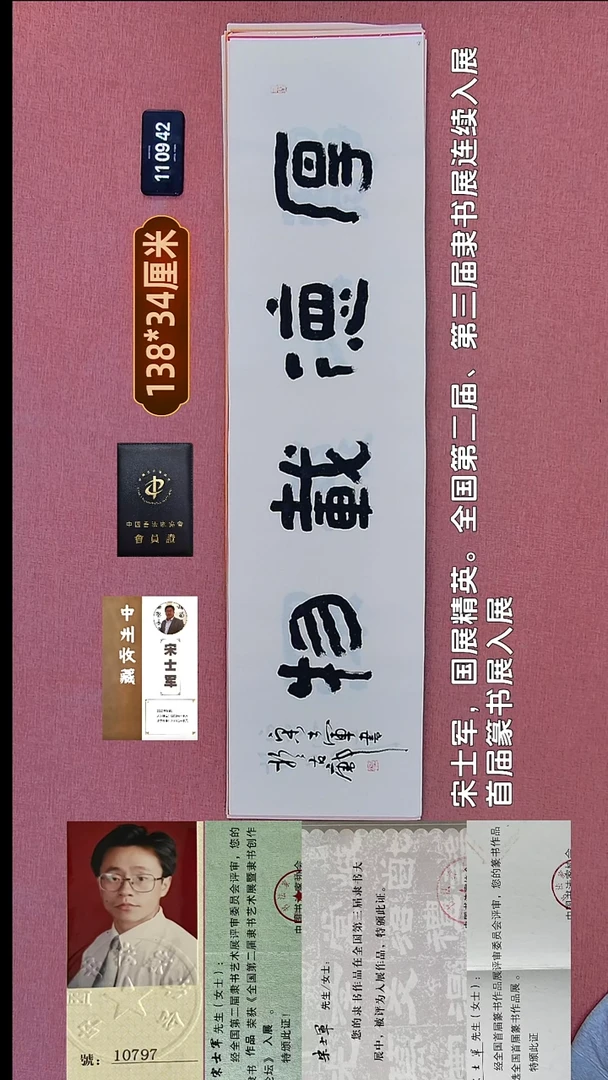 厚德載物
宋士軍書
於古蔚
110942
138*34厘米
中国书法家协会
會員證
宋士军
宋士军，国展精英。全国第二届、第三届隶书展连续入展
首届篆书展入展
號：10797
宋士军 先生（女士）：
经全国第二届隶书艺术展评审委员会评审，您的
隶书 作品 荣获《全国第二届隶书艺术展暨隶书创作
论坛》入展 。
特颁此证！
宋士军 先生/女士：
您的隶书作品在全国第三届隶书大
展中，被评为入展作品，特颁此证。
士军 先生（女士）：
经全国首届篆书作品展评审委员会评审，您的篆书作品
选全国首届篆书作品展 。
特颁此证